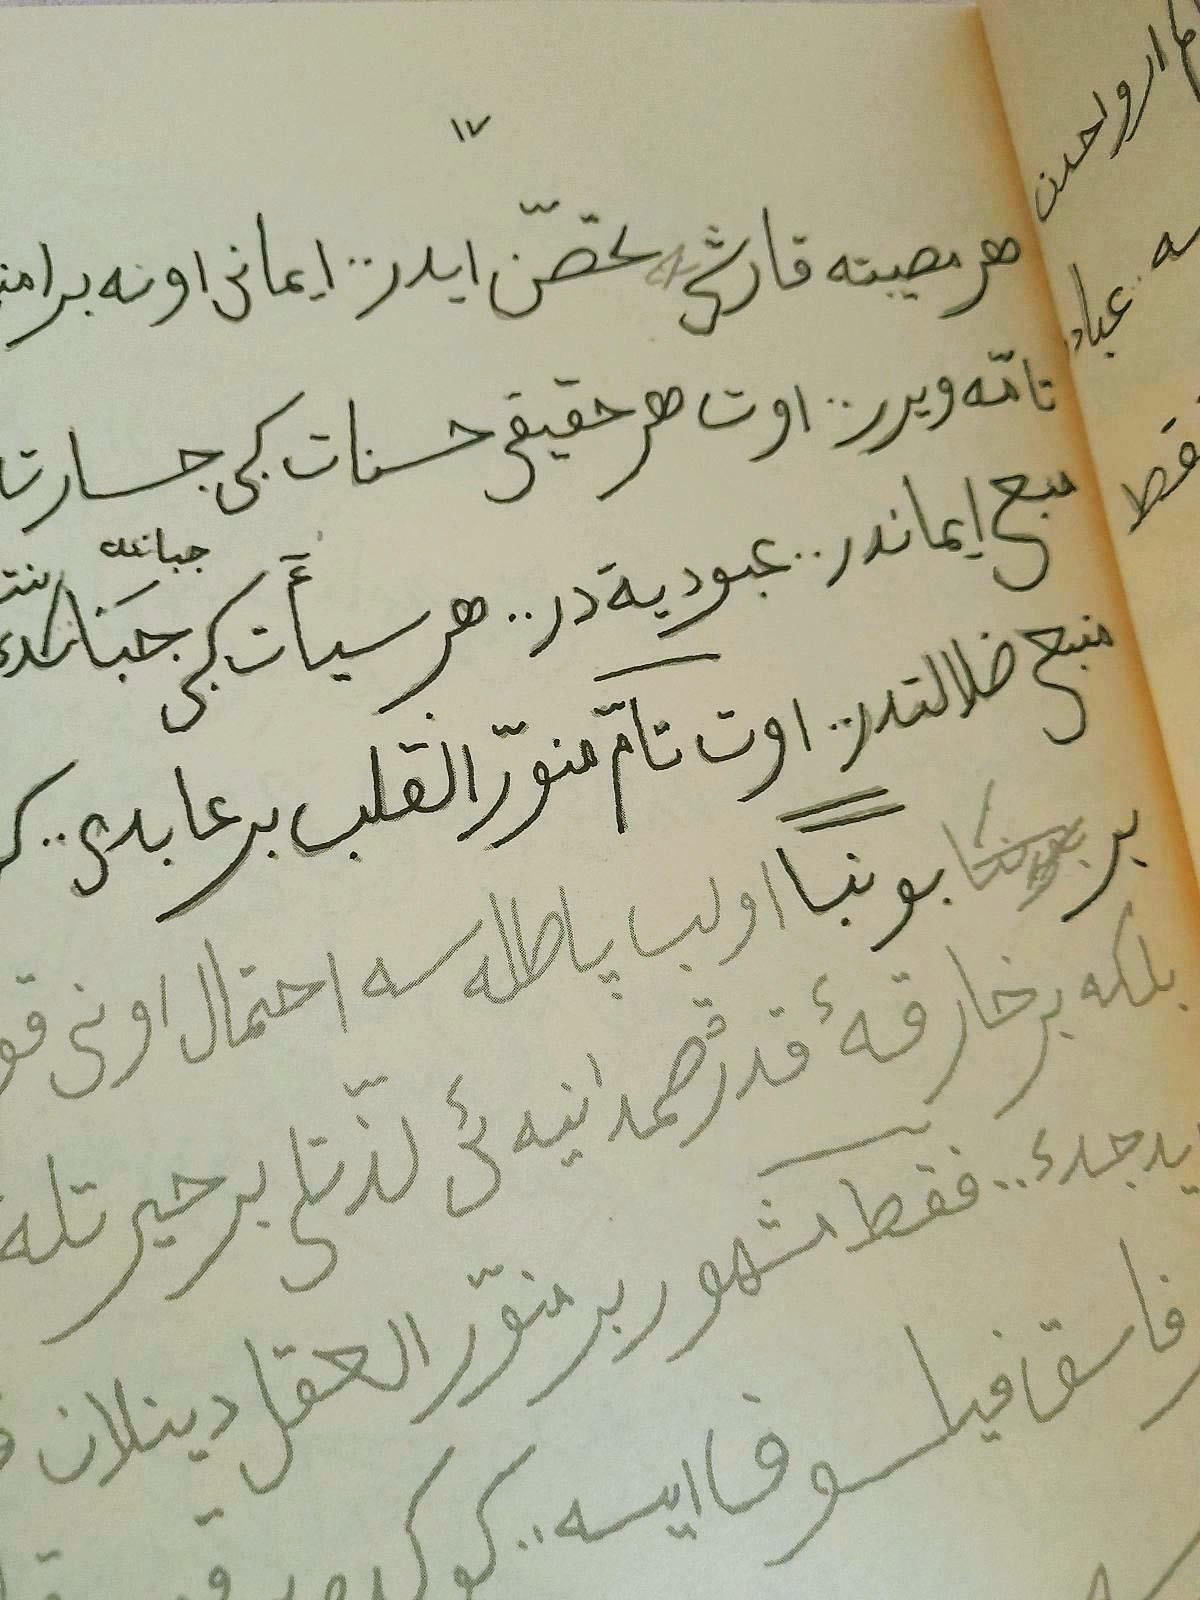 ١٧
هر مصيبته قارشى تحصّن ايدر.. ايمانى اونه بر امنيت
تامّه ويرر.. اوت هر حقيقى حسنات كبى جسارت
منبع ايماندر.. عبوديةدر.. هر سيأت كبى جبانتك
جبانتك
منبع ضلالتدر.. اوت تامّ منوّر القلب بر عابدى.. كره
بر بومبا اولب پاطلهسه احتمال اونى
بلكه بر خارقهٔ قدرت صمدانيهئى لذّتلى بر حيرتله
ايدجك.. فقط مشهور بر منوّر العقل دينلان
فاسق فيلسوفا ايسه.. كوكده
ارواحدن
فقط